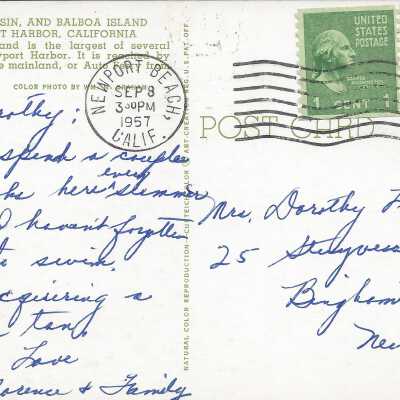 SIN, AND BALBOA ISLAND
T HARBOR, CALIFORNIA
and is the largest of several
wport Harbor. It is reached by
e mainland, or Auto ferry from
COLOR PHOTO BY
NEWPORT BEACH,
SEP 8
3 30 PM
1957
CALIF.
UNITED
STATES
POSTAGE
1 CENT 1
POST CARD
NATURAL COLOR REPRODUCTION
rothy;
spend a couple
every
ks here summer
I haven't forgotten
to swim.
cquiring a
tan"
Love
lorence & Family
Mrs. Dorothy
25 Stuyvesa
Bingham
New